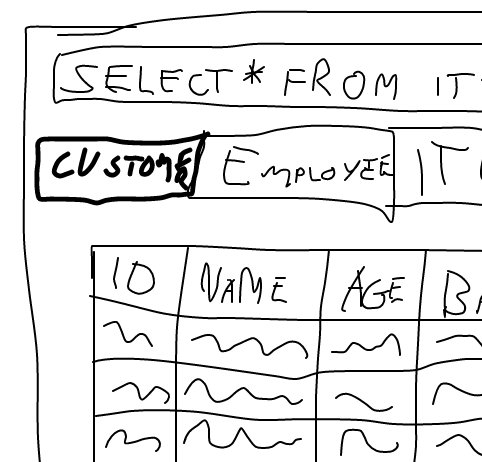 SELECT * FROM IT
CUSTOMER EMPLOYEE IT
ID NAME AGE BA